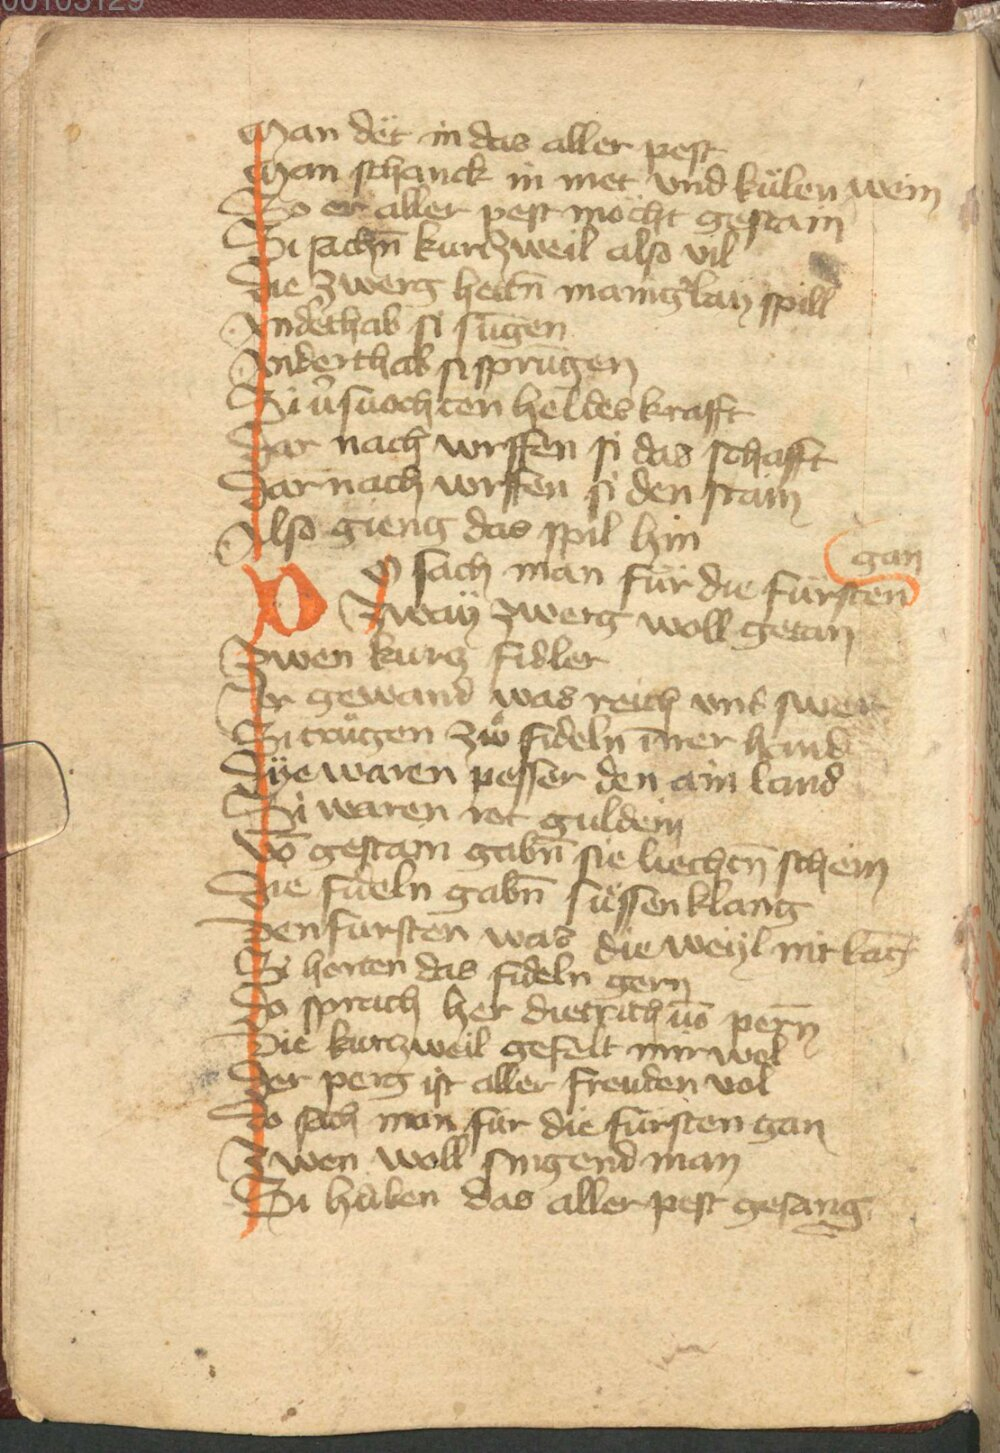 00105129
Man dët in das aller pest
Man schanck in met vnd külen wein
So er aller pest möcht gesain
Si sachn̄ kurczweil also vil
Die zwerg hettn̄ maniglay spill
Andethab si sūgen
Anderthab si sprūgen
Si v̉suochten heldes krafft
Dar nach wrffen si das schafft
Dar nach wrffen si den stain
Also gieng das spil hin
gan
Do sach man für die fürsten
Zwaÿ zwerg woll getan
Zwen kurcz fidler
Ir gewand was reich vnd swer
Si trügen zwo fideln ī irer hand
Dÿe waren pesser den ain land
Si waren rot guldein
Vō gestain gabn̄ sie liechtn̄ schein
Die fideln gabn̄ süssen klang
Den fürsten was die weyl nit lāg
Si horten das fideln gern
Do sprach her dietrich vō pern
Die kurczweil gefelt mir wol
Der perg ist aller freuden vol
Do sach man für die fürsten gan
Zwen woll singend man
Si huben das aller pest gesang